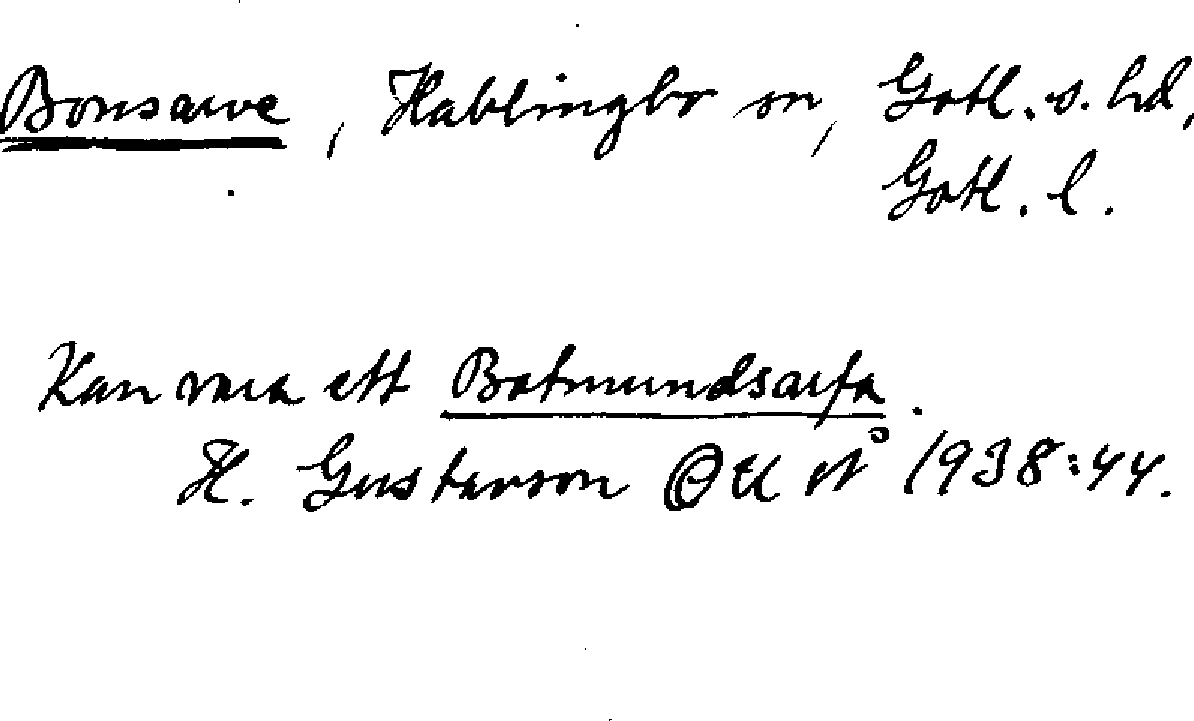 Bonsarve, Hablingbo sn, Gotl. s. hd,
Gotl. l.
Kan vara ett Botmundsarfa.
H. Gustavson 1938:44.